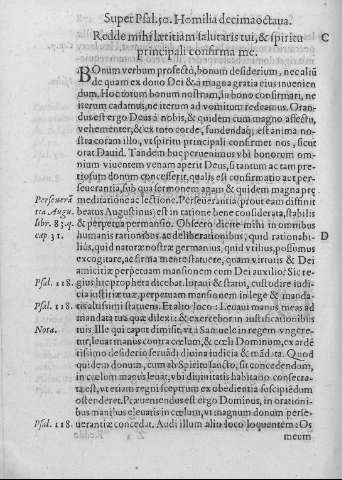 Super Psal. 50. Homilia decimaoctaua.
Redde mihi lætitiam salutaris tui, & spiritu C
principali confirma me.
BOnum verbum profectò, bonum desiderium, nec aliũ
de quam ex dono Dei & à magna gratia eius inueniendum.
Hoc totum bonum nostrum, in bono confirmari, ne
iterum cadamus, ne iterum ad vomitum redeamus. Orandus
est ergo Deus à nobis, & quidem cum magno affectu,
vehementer, & ex toto corde, fundendaq; est anima nostra
coram illo, vt spiritu principali confirmet nos, sicut
orat Dauid. Tandem huc peruenimus vbi bonorum omnium
viuentem venam aperit Deus, si tantum ac tam pretiosum
donum concesserit, qualis est confirmatio ac perseuerantia,
sub qua sermonem agam & quidem magna præ
Perseuerã meditatione ac lectione. Perseuerãtia (prout eam diffinit
tia. Augu. beatus Augustinus) est in ratione bene considerata, stabilis
libr. 83. q. & perpetua permansio. Obsecro dicite mihi in omnibus
cap 31. humanis rationibus ac deliberationibus, quid rationabilius, D
quid naturæ nostræ germanius, quid vtilius, possumus
excogitare, ac firma mente statuere, quam virtutis & Dei
amicitiæ perpetuam mansionem cum Dei auxilio? Sic regius
Psal. 118. hic propheta dicebat. Iuraui & statui, custodire iudicia
iustitiæ tuæ, perpetuam mansionem in lege & mandatis
Psal. 118. altissimi statuens. Et alio loco: Leuaui manus meas ad
mandata tua quæ dilexi: & exercebor in iustificationibus
Nota. tuis. Ille qui caput dimisit, vt à Samuele in regem vngeretur,
leuat manus contra cœlum, & cœli Dominum, ex ardẽtissimo
desiderio seruãdi diuina iudicia & mãdata. Quod
quidem donum, cum ab Spiritu sancto, sit concedendum,
in cœlum manus leuat, vbi diuinitatis habitatio consecrata
est, vt etiam regni sceptrum ex obedientia suscipiẽdum
ostenderet. Præueniendus est ergo Dominus, in orationibus
manibus eleuatis in cœlum, vt magnum donum perseuerantiæ
Psal. 118. concedat. Audi illum alio loco loquentem: Os
Redde Z meum